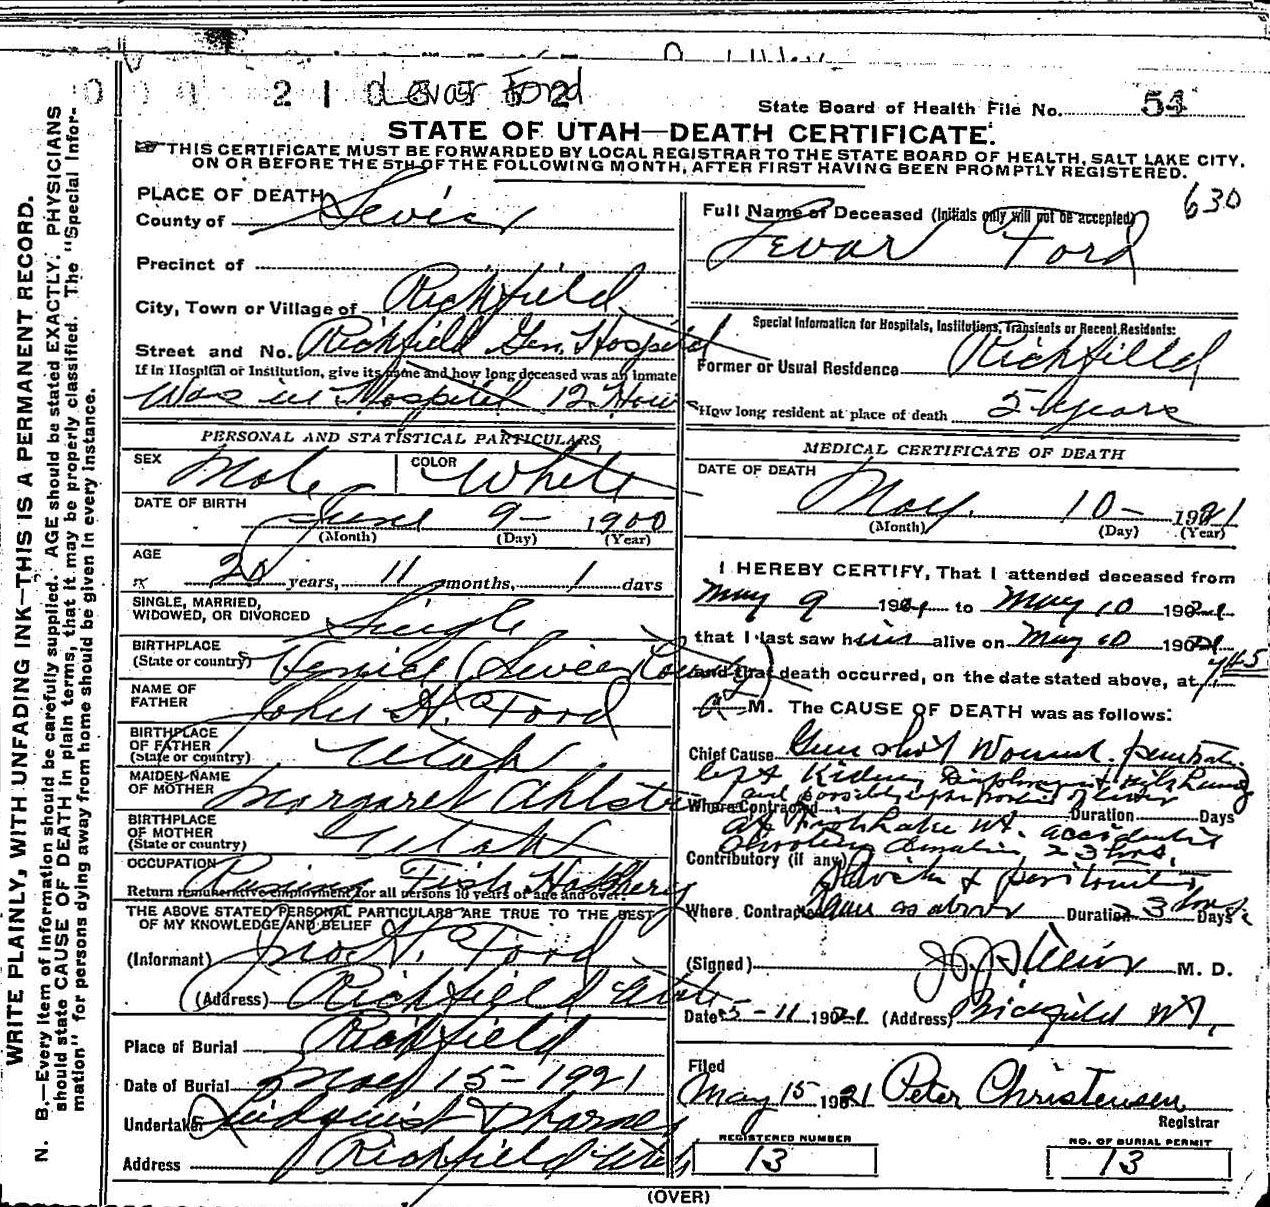 Levar Ford
State Board of Health File No. 54
STATE OF UTAH—DEATH CERTIFICATE.
THIS CERTIFICATE MUST BE FORWARDED BY LOCAL REGISTRAR TO THE STATE BOARD OF HEALTH, SALT LAKE CITY,
ON OR BEFORE THE 5TH OF THE FOLLOWING MONTH, AFTER FIRST HAVING BEEN PROMPTLY REGISTERED.
WRITE PLAINLY, WITH UNFADING INK—THIS IS A PERMANENT RECORD.
N. B.—Every item of information should be carefully supplied. AGE should be stated EXACTLY. PHYSICIANS
should state CAUSE OF DEATH in plain terms, that it may be properly classified. The "Special Infor-
mation" for persons dying away from home should be given in every instance.
PLACE OF DEATH
County of Sevier
Precinct of
City, Town or Village of Richfield
Street and No. Richfield Gen. Hospital
If in Hospital or Institution, give its name and how long deceased was an inmate
Was in Hospital 12 Hours
PERSONAL AND STATISTICAL PARTICULARS
SEX Male COLOR White
DATE OF BIRTH June 9- 1900
(Month) (Day) (Year)
AGE
20 years, 11 months, 1 days
SINGLE, MARRIED,
WIDOWED, OR DIVORCED Single
BIRTHPLACE
(State or country) Venice (Sevier County)
NAME OF
FATHER John H. Ford
BIRTHPLACE
OF FATHER
(State or country) Utah
MAIDEN NAME
OF MOTHER Margaret
BIRTHPLACE
OF MOTHER
(State or country) Utah
OCCUPATION Fish Hatchery
Return remunerative employment for all persons 10 years of age and over.
THE ABOVE STATED PERSONAL PARTICULARS ARE TRUE TO THE BEST
OF MY KNOWLEDGE AND BELIEF
(Informant) Jno H. Ford
(Address) Richfield Utah
Place of Burial Richfield
Date of Burial May 15-1921
Undertaker Lindquist &
Address Richfield Utah
630
Full Name of Deceased (Initials only will not be accepted)
Levar Ford
Special Information for Hospitals, Institutions, Transients or Recent Residents:
Former or Usual Residence Richfield
How long resident at place of death 5 years
MEDICAL CERTIFICATE OF DEATH
DATE OF DEATH
May 10- 1921
(Month) (Day) (Year)
I HEREBY CERTIFY, That I attended deceased from
May 9 1921 to May 10 1921
that I last saw him alive on May 10 1921
and that death occurred, on the date stated above, at 7:45
a M. The CAUSE OF DEATH was as follows:
Chief Cause Gun shot Wound. penetrate
left Kidney Diaphragm & right Lung
and possibly upper portion of liver
Where Contracted Duration Days
at Fish Lake Ut. accidental
shooting duration 23 hrs.
Contributory (if any) Shock & peritonitis
Where Contracted Same as above Duration 23 hrs Days
(Signed) M. D.
Date 5-11 1921 (Address) Richfield Ut.
Filed
May 15 1921 Peter Christensen
Registrar
REGISTERED NUMBER
13
NO. OF BURIAL PERMIT
13
(OVER)